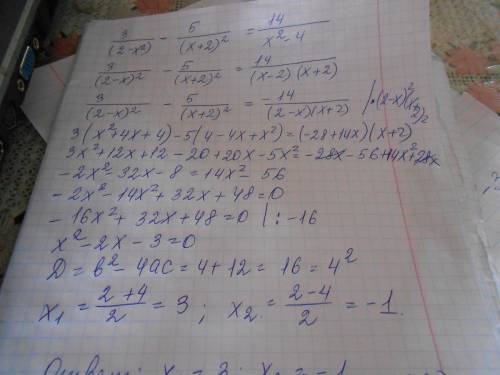 3/(2-x²) - 5/(x+2)² = 14/(x²-4)
3/(2-x)² - 5/(x+2)² = 14/((x-2)(x+2))
3/(2-x)² - 5/(x+2)² = -14/((2-x)(x+2)) |·(2-x)²(x+2)²
3(x²+4x+4)-5(4-4x+x²)=(-28+14x)(x+2)
3x²+12x+12-20+20x-5x²=-28x-56+14x²+28x
-2x²-32x-8=14x²-56
-2x²-14x²+32x+48=0
-16x²+32x+48=0 |:-16
x²-2x-3=0
D=b²-4ac=4+12=16=4²
x₁=(2+4)/2=3; x₂=(2-4)/2=-1.
Ответ: x₁=3; x₂=-1